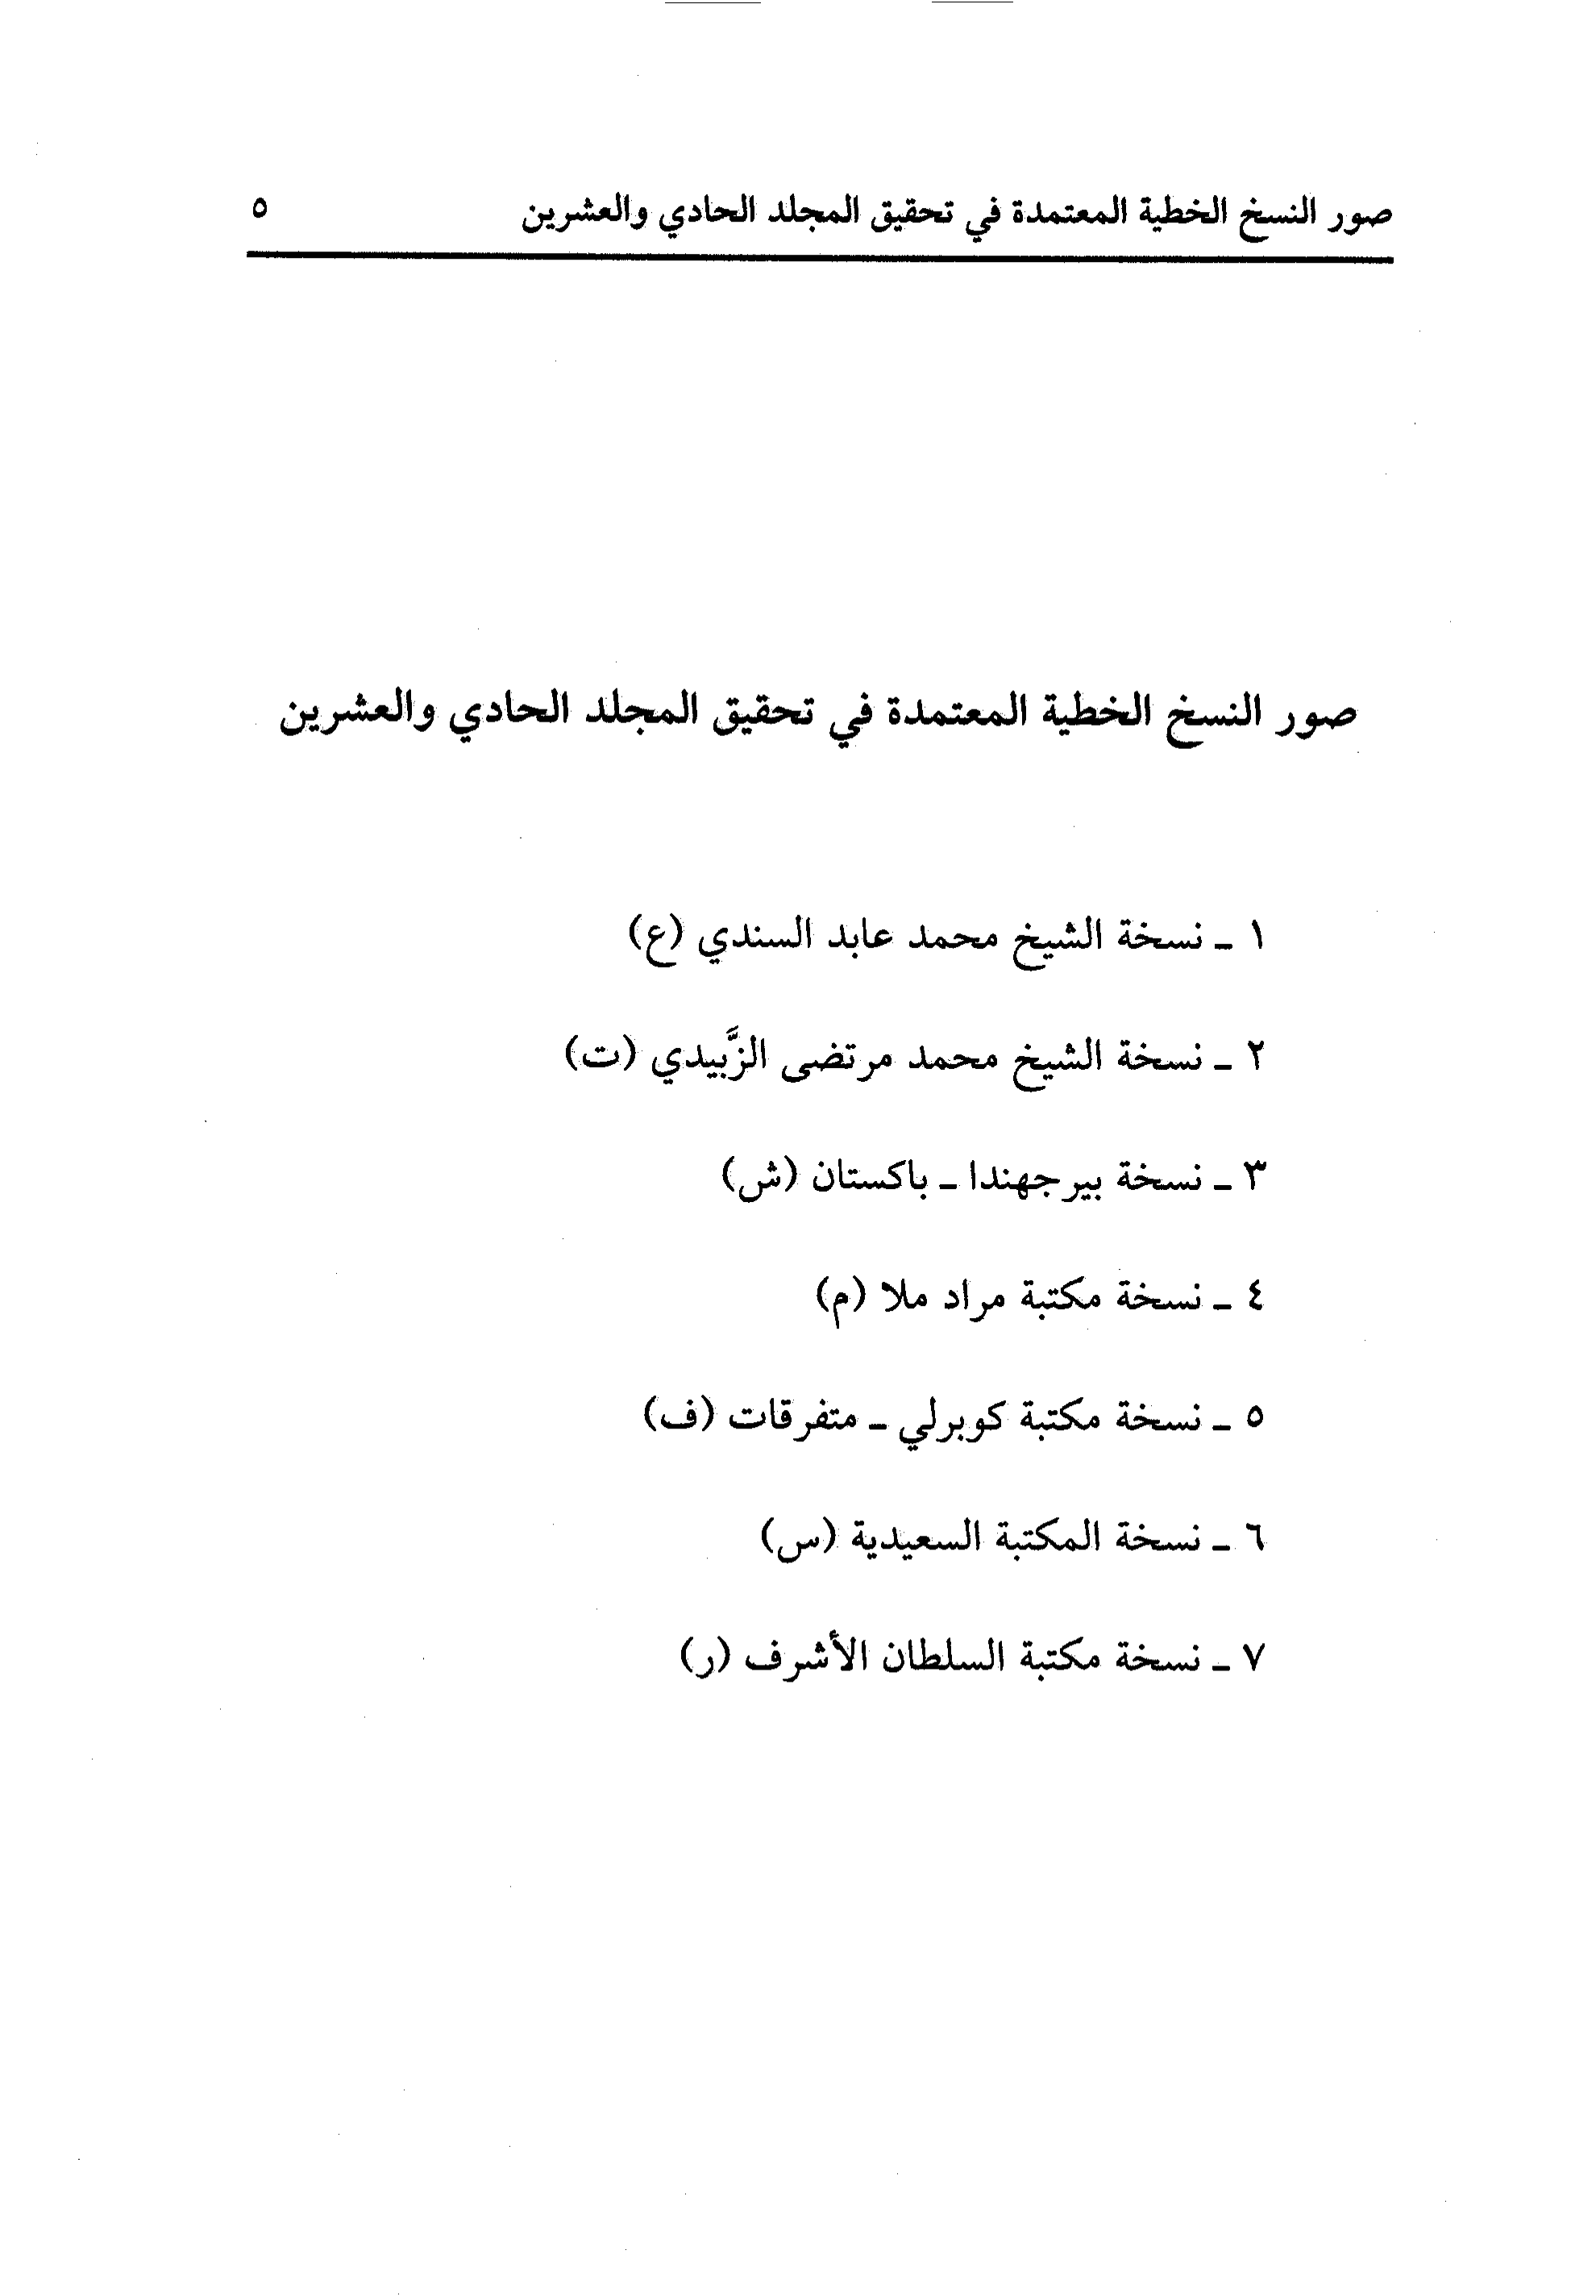 صور النسخ الخطية المعتمدة في تحقيق المجلد الحادي والعشرين ٥
صور النسخ الخطية المعتمدة في تحقيق المجلد الحادي والعشرين
١ ـ نسخة الشيخ محمد عابد السندي (ع)
٢ ـ نسخة الشيخ محمد مرتضى الزَّبيدي (ت)
٣ ـ نسخة بيرجهندا ـ باكستان (ش)
٤ ـ نسخة مكتبة مراد ملا (م)
٥ ـ نسخة مكتبة كوبرلي ـ متفرقات (ف)
٦ ـ نسخة المكتبة السعيدية (س)
٧ ـ نسخة مكتبة السلطان الأشرف (ر)